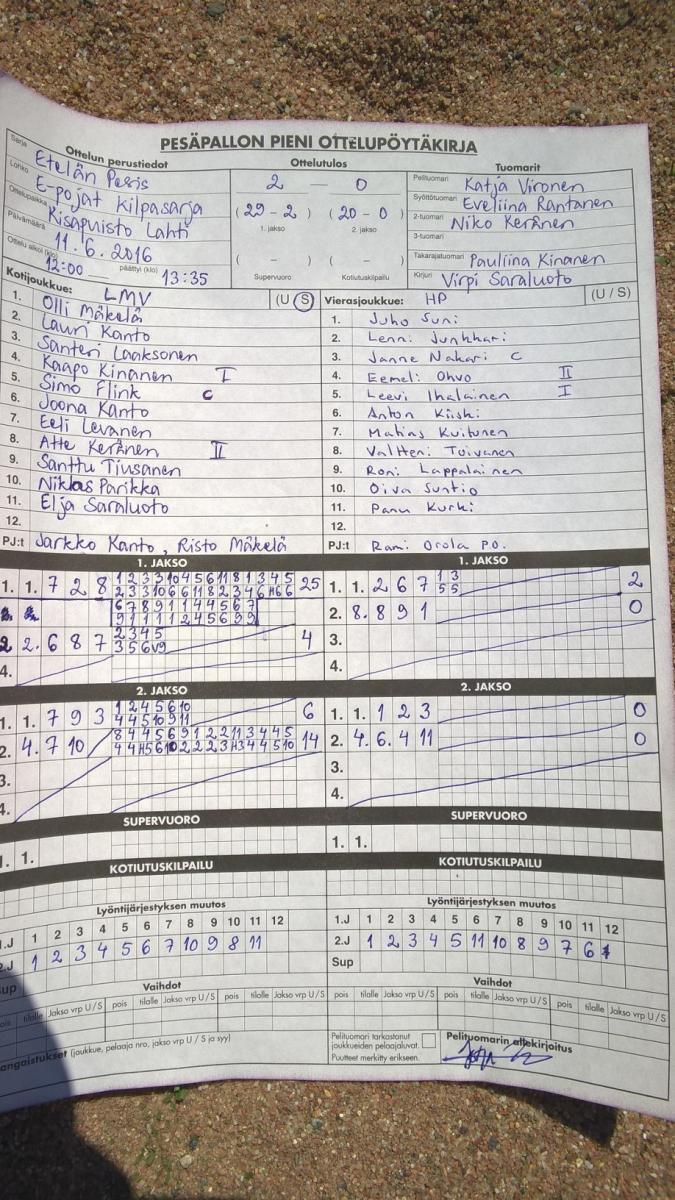 PESÄPALLON PIENI OTTELUPÖYTÄKIRJA
Ottelun perustiedot
Sarja Etelän Pesis
Lohko E-pojat Kilpasarja
Ottelupaikka Risapuisto Lahti
Päivämäärä 11.6.2016
Ottelu alkoi (klo) 12:00 päättyi (klo) 13:35
Ottelutulos
2 – 0
(29 – 2) (20 – 0)
1. jakso 2. jakso
( – ) ( – )
Supervuoro Kotiutuskilpailu
Tuomarit
Pelituomari Katja Vironen
Syöttötuomari Eveliina Rantanen
2-tuomari Niko Keränen
3-tuomari
Takarajatuomari Pauliina Kinanen
Kirjuri Virpi Saraluoto
Kotijoukkue: LMV (U / S)
1. Olli Mäkelä
2. Lauri Kanto
3. Santeri Laaksonen
4. Kaapo Kinanen I
5. Simo Flink C
6. Joona Kanto
7. Eeli Levänen
8. Atte Keränen II
9. Santtu Tiusanen
10. Niklas Parikka
11. Elja Saraluoto
12.
PJ:t Jarkko Kanto, Risto Mäkelä
Vierasjoukkue: HP (U / S)
1. Juho Suni
2. Lenni Junkkari
3. Janne Nakari C
4. Eemeli Ohvo II
5. Leevi Ihalainen I
6. Anton Kiiski
7. Matias Kuitunen
8. Valtteri Toivanen
9. Roni Lappalainen
10. Oiva Suntio
11. Panu Kurki
12.
PJ:t Rami Orola PO.
1. JAKSO
1. 1. 7 2 8 25
2. 2. 6 8 7 4
2 3 4 5
3 5 6 V9
4.
1. JAKSO
1. 1. 2 6 7 2
1 3
5 5
2. 8. 8 9 1 0
3.
4.
2. JAKSO
1. 1. 7 9 3 6
1 2 4 5 6 10
4 4 5 10 9 11
2. 4. 7 10 14
3.
4.
2. JAKSO
1. 1. 1 2 3 0
2. 4. 6. 4 11 0
3.
4.
SUPERVUORO
1. 1.
SUPERVUORO
1. 1.
KOTIUTUSKILPAILU
KOTIUTUSKILPAILU
Lyöntijärjestyksen muutos
1.J 1 2 3 4 5 6 7 8 9 10 11 12
2.J 1 2 3 4 5 6 7 10 9 8 11
Sup
Lyöntijärjestyksen muutos
1.J 1 2 3 4 5 6 7 8 9 10 11 12
2.J 1 2 3 4 5 11 10 8 9 7 6
Sup
Vaihdot
pois tilalle Jakso vrp U / S pois tilalle Jakso vrp U / S pois tilalle Jakso vrp U / S
Vaihdot
pois tilalle Jakso vrp U / S pois tilalle Jakso vrp U / S pois tilalle Jakso vrp U / S
angaistukset (joukkue, pelaaja nro, jakso vrp U / S ja syy)
Pelituomari tarkastanut
joukkueiden pelaajaluvat.
Puutteet merkitty erikseen.
Pelituomarin allekirjoitus